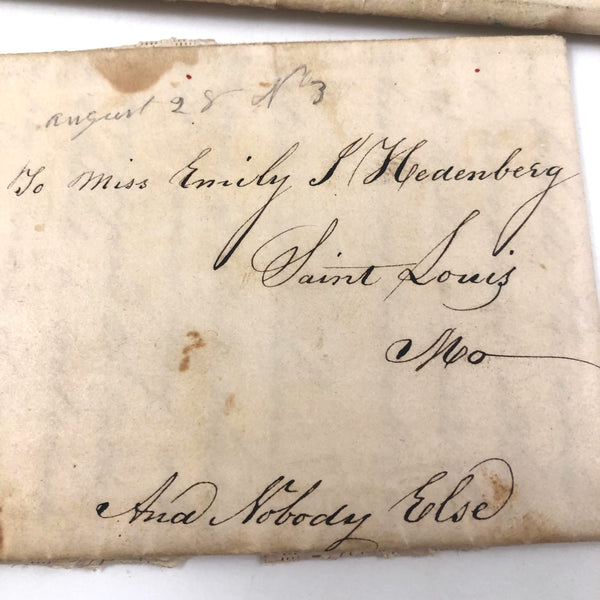 August 28 No 3
To Miss Emily J Hedenberg
Saint Louis
Mo
And Nobody Else